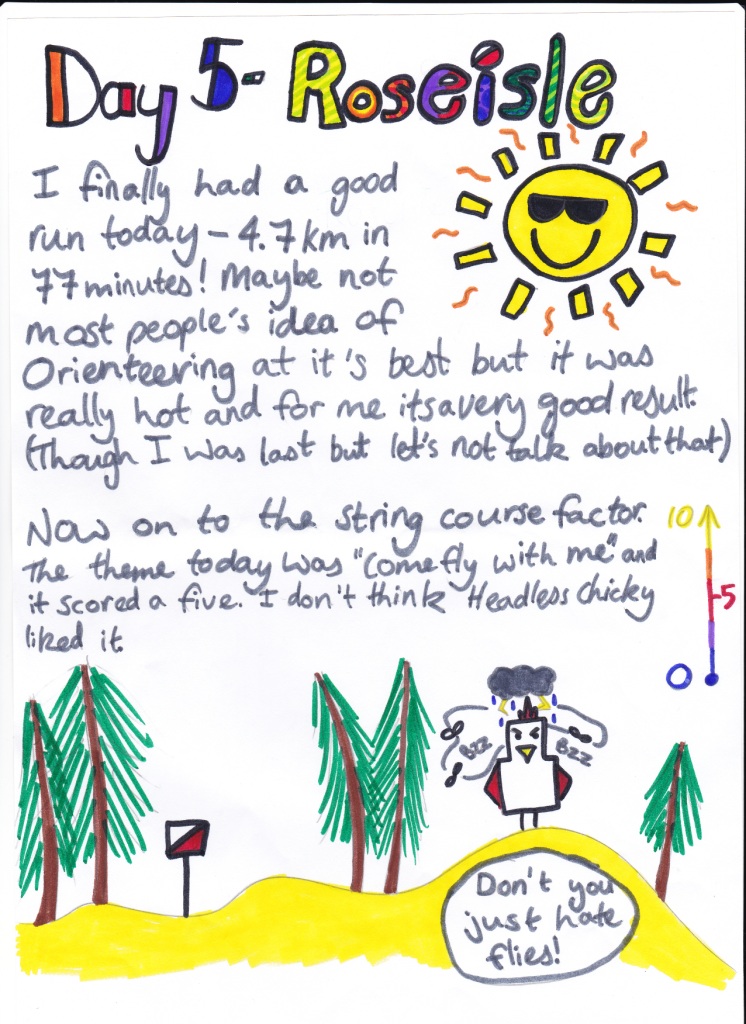 Day 5- Roseisle
I finally had a good
run today - 4.7km in
77 minutes! Maybe not
most people's idea of
Orienteering at it's best but it was
really hot and for me itsavery good result.
(Though I was last but let's not talk about that)
Now on to the string course factor.
The theme today was "Come fly with me" and
it scored a five. I don't think Headless Chicky
liked it.
10
5
0
BZZ
BZZ
Don't you
just hate
flies!